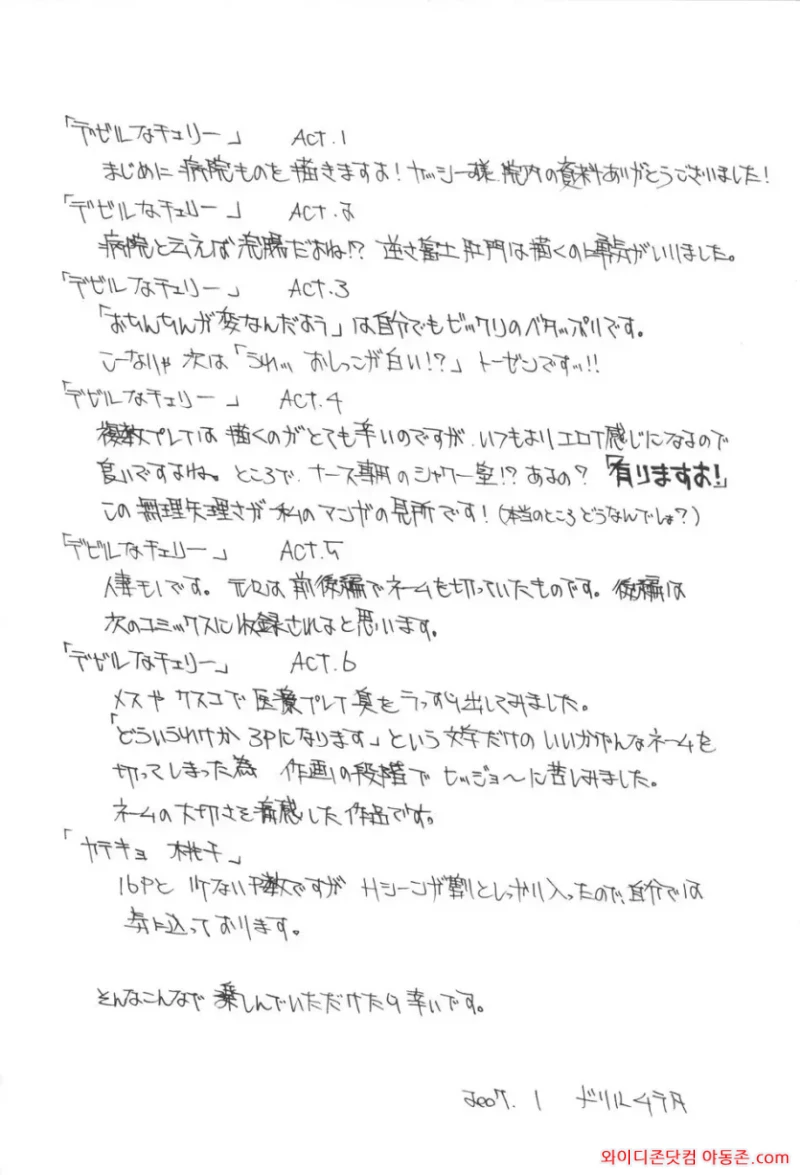 「デビルなチェリー」 Act.1
まじめに病院ものを描きますよ!ナッシー様、院内の資料ありがとうございました!
「デビルなチェリー」 Act.2
病院と云えば浣腸だよね!? 逆さ富士肛門は描くのに勇気がいりました。
「デビルなチェリー」 Act.3
「おちんちんが変なんだよう」は自分でもビックリのベタッぷりです。
こーなりゃ次は「うわッ おしっこが白い!?」トーゼンですッ!!
「デビルなチェリー」 Act.4
複数プレイは描くのがとても辛いのですが、いつもよりエロイ感じになるので
良いですよね。ところで、ナース専用のシャワー室!?あるの?「有りますよ!」
この無理矢理さが私のマンガの見所です!(本当のところどうなんでしょ?)
「デビルなチェリー」 Act.5
人妻モノです。元々は前後編でネームを切っていたものです。後編は
次のコミックスに収録されると思います。
「デビルなチェリー」 Act.6
メスやクスコで医療プレイ臭をうっすら出してみました。
「どういうわけか3Pになります」という文字だけのいいかげんなネームを
切ってしまった為 作画の段階でヒッジョ〜に苦しみました。
ネームの大切さを痛感した作品です。
「カテキョ 桃子」
16Pと少ない枚数ですがHシーンが割としっかり入ったので、自分では
気に入っております。
そんなこんなで楽しんでいただけたら幸いです。
2007. 1 ドリルムラタ
와이디존닷컴 아동존.com